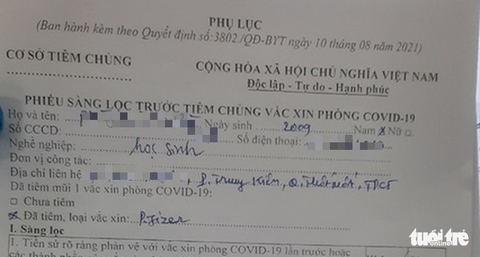 PHỤ LỤC
(Ban hành kèm theo Quyết định số:3802./QĐ-BYT ngày 10 tháng 08 năm 2021)
CƠ SỞ TIÊM CHỦNG
CỘNG HÒA XÃ HỘI CHỦ NGHĨA VIỆT NAM
Độc lập - Tự do - Hạnh phúc
PHIẾU SÀNG LỌC TRƯỚC TIÊM CHỦNG VẮC XIN PHÒNG COVID-19
Họ và tên: Ngày sinh 2009 Nam Nữ □
Số CCCD: Số điện thoại:
Nghề nghiệp: học sinh
Đơn vị công tác:
Địa chỉ liên hệ P. Trung Kiên, Q. Thốt Nốt, TPCT
Đã tiêm mũi 1 vắc xin phòng COVID-19:
□ Chưa tiêm
Đã tiêm, loại vắc xin: Pfizer
I. Sàng lọc
1. Tiền sử rõ ràng phản vệ với vắc xin phòng COVID-19 lần trước hoặc
các thành phần của vắc xin
tuổi trẻ
online